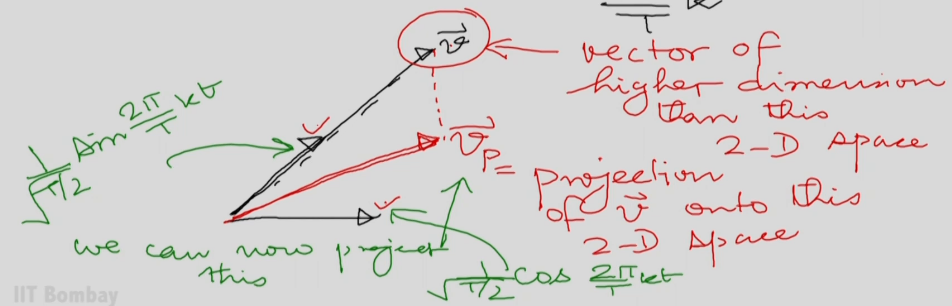 v⃗
vector of
higher dimension
than this
2-D space
1/√(T/2) sin 2π/T kt
v⃗p = projection
of v⃗ onto this
2-D space
we can now project
this
1/√(T/2) cos 2π/T kt
IIT Bombay